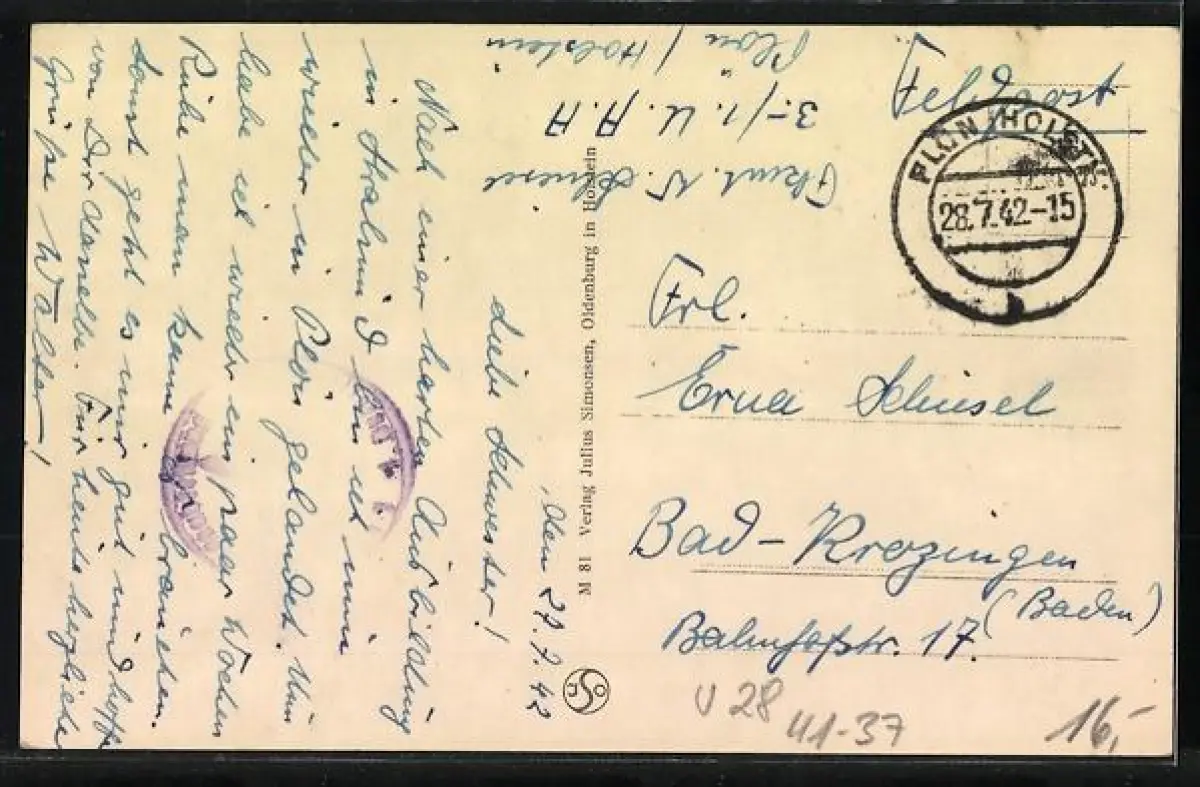 Feldpost
PLÖN (HOLST)
28.7.42-15
W. Schiesel
3./1. U. A. A
Plön / Holstein
Frl.
Erna Schiesel
Bad-Krozingen
(Baden)
Bahnhofstr. 17.
M 81 Verlag Julius Simonsen, Oldenburg in Holstein
den 27.7.42
Liebe Schwester!
Nach einer harten Ausbildung
in Stralsund bin ich nun
wieder in Plön gelandet. Nun
habe ich wieder ein paar Wochen
Ruhe man kann es brauchen.
Sonst geht es mir gut und hoffe
von Dir dasselbe. Für heute herzliche
Grüße Walter!
V 28
41-37
16,-